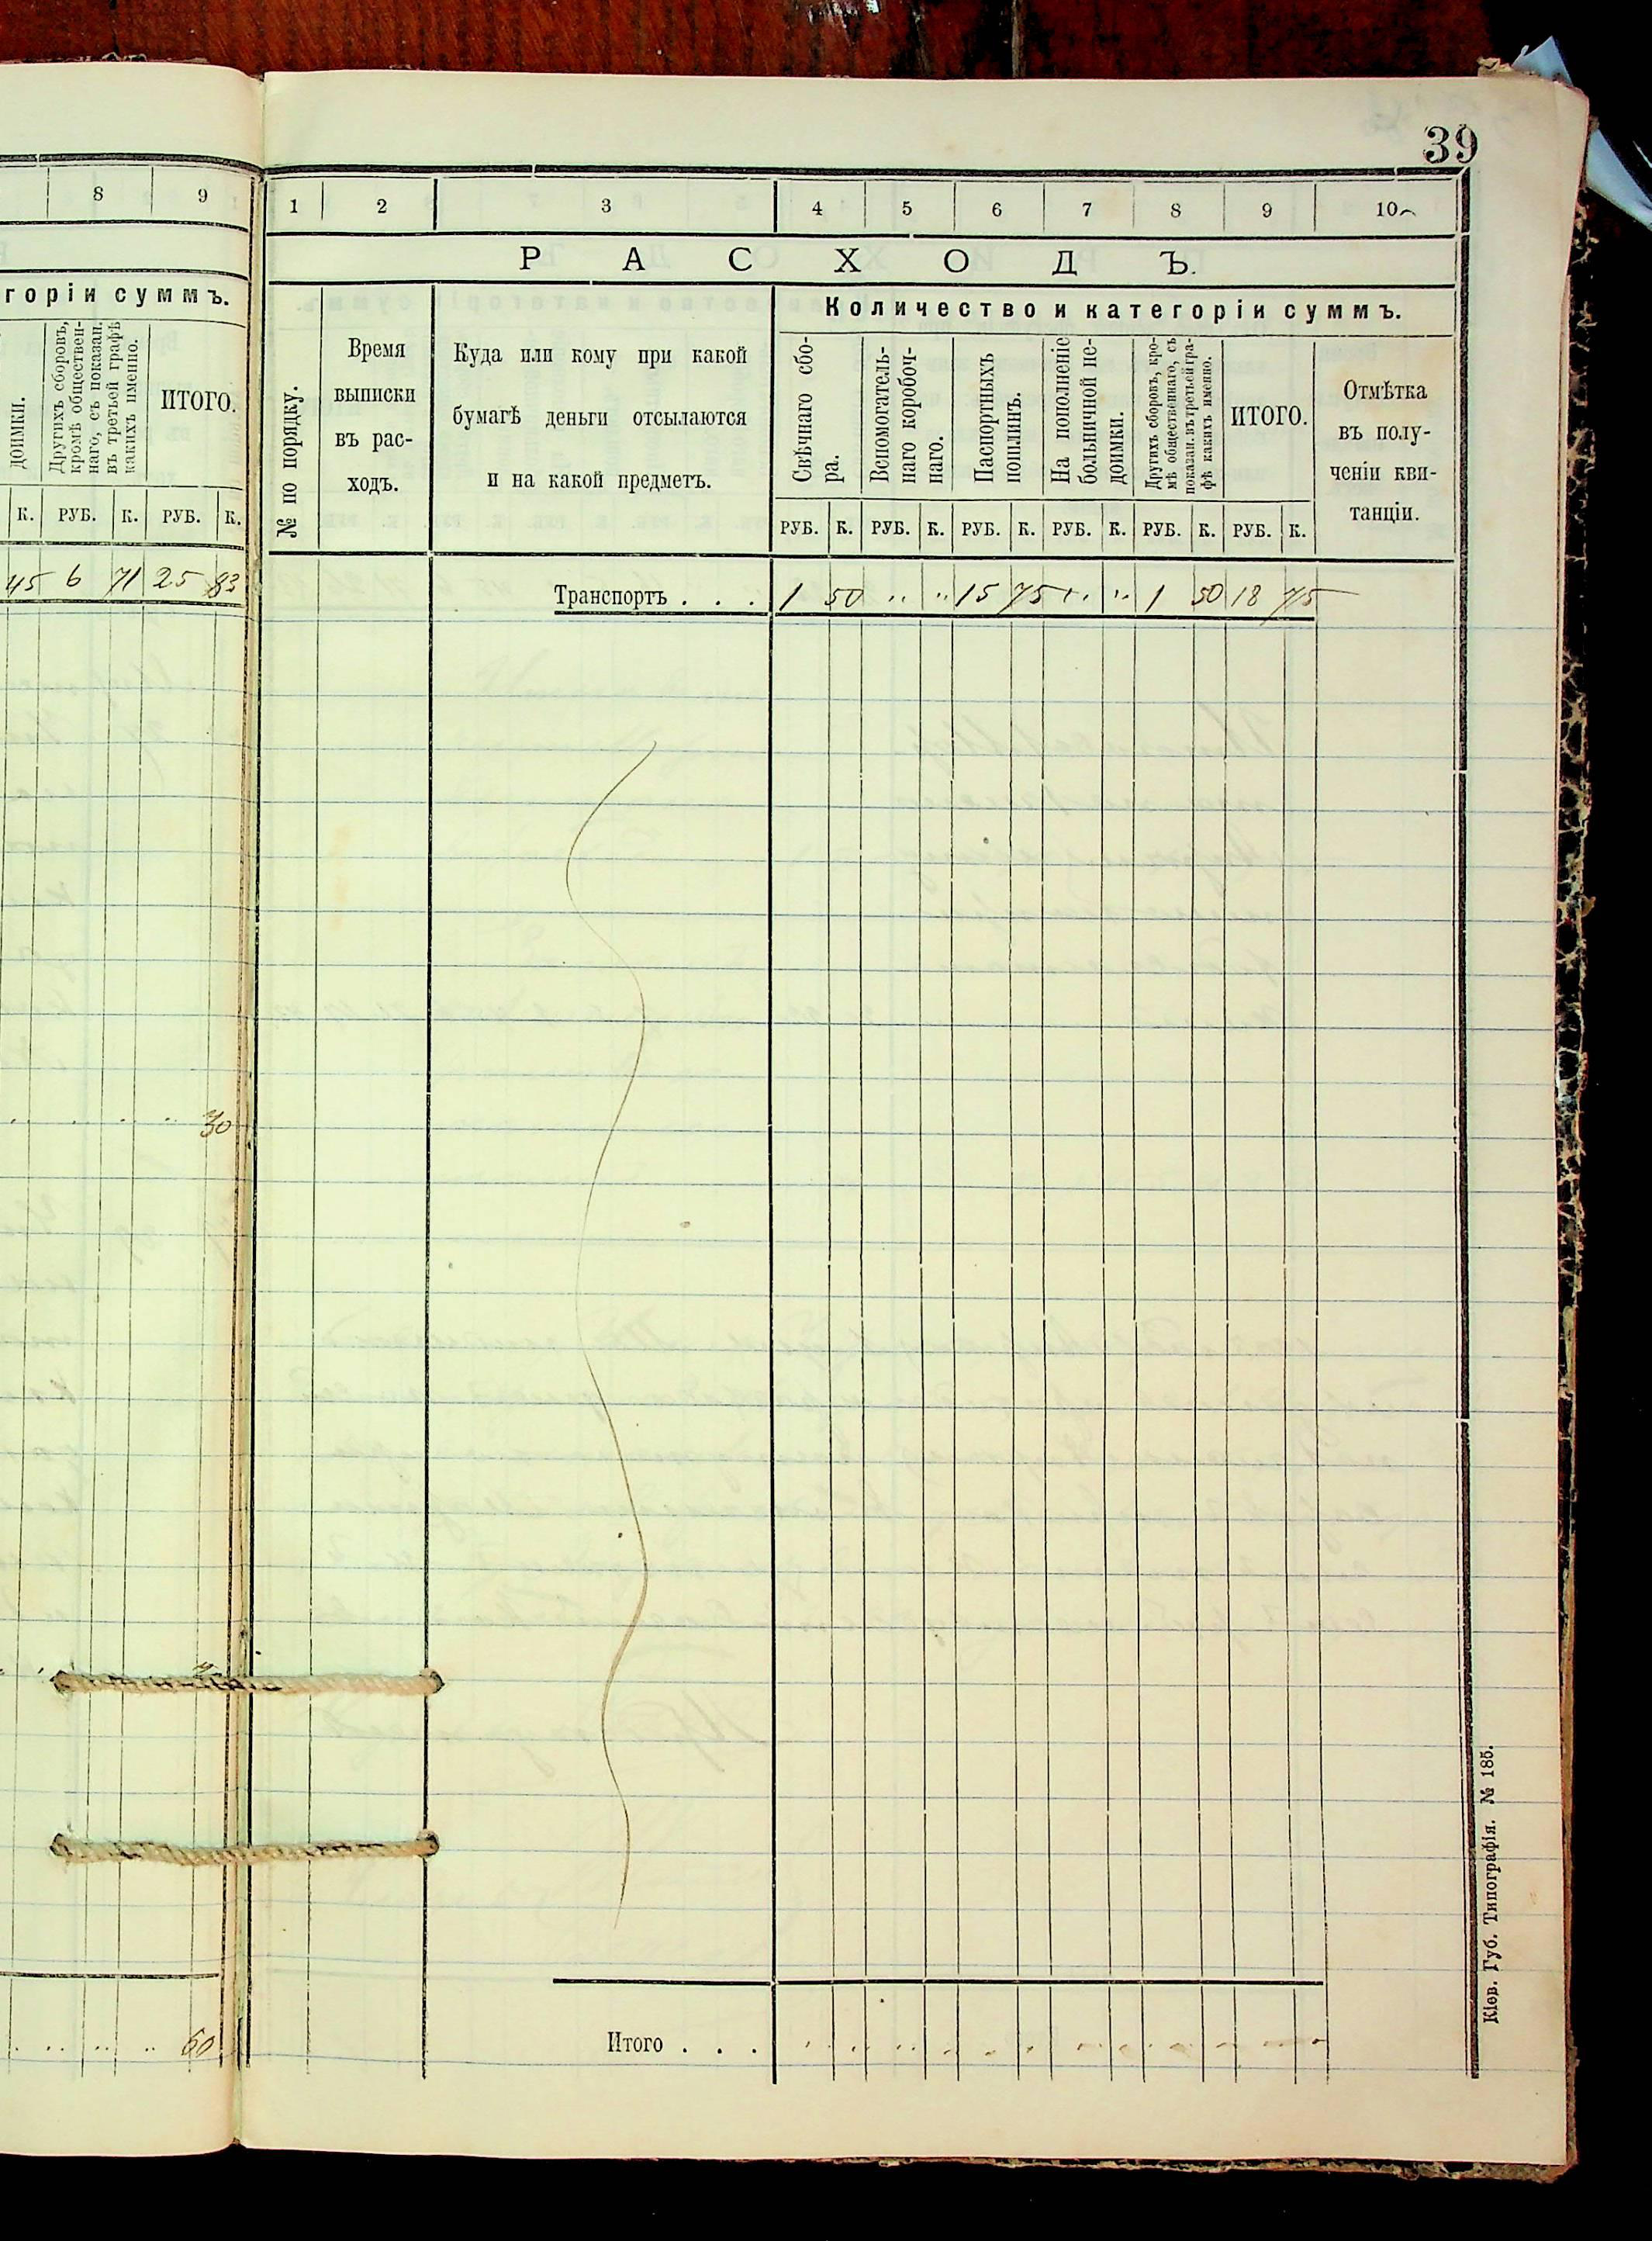 39
8 9
горіи суммъ.
доимки.
Другихъ сборовъ,
кромѣ обществен-
наго, съ показан.
въ третьей графѣ
какихъ именно.
ИТОГО.
К. РУБ. К. РУБ. К.
45 6 71 25 83
30
60
1 2 3 4 5 6 7 8 9 10
РАСХОДЪ.
№ по порядку.
Время
выписки
въ рас-
ходъ.
Куда или кому при какой
бумагѣ деньги отсылаются
и на какой предметъ.
Количество и категоріи суммъ.
Свѣчнаго сбо-
ра.
Вспомогатель-
наго коробоч-
наго.
Паспортныхъ
пошлинъ.
На пополненіе
больничной не-
доимки.
Другихъ сборовъ, кро-
мѣ общественнаго, съ
показан. въ третьей гра-
фѣ какихъ именно.
ИТОГО.
Отмѣтка
въ полу-
ченіи кви-
танціи.
РУБ. К. РУБ. К. РУБ. К. РУБ. К. РУБ. К. РУБ. К.
Транспортъ . . . 1 50 " " 15 75 " " 1 50 18 75
Итого . . .
Кіев. Губ. Типографія. № 185.